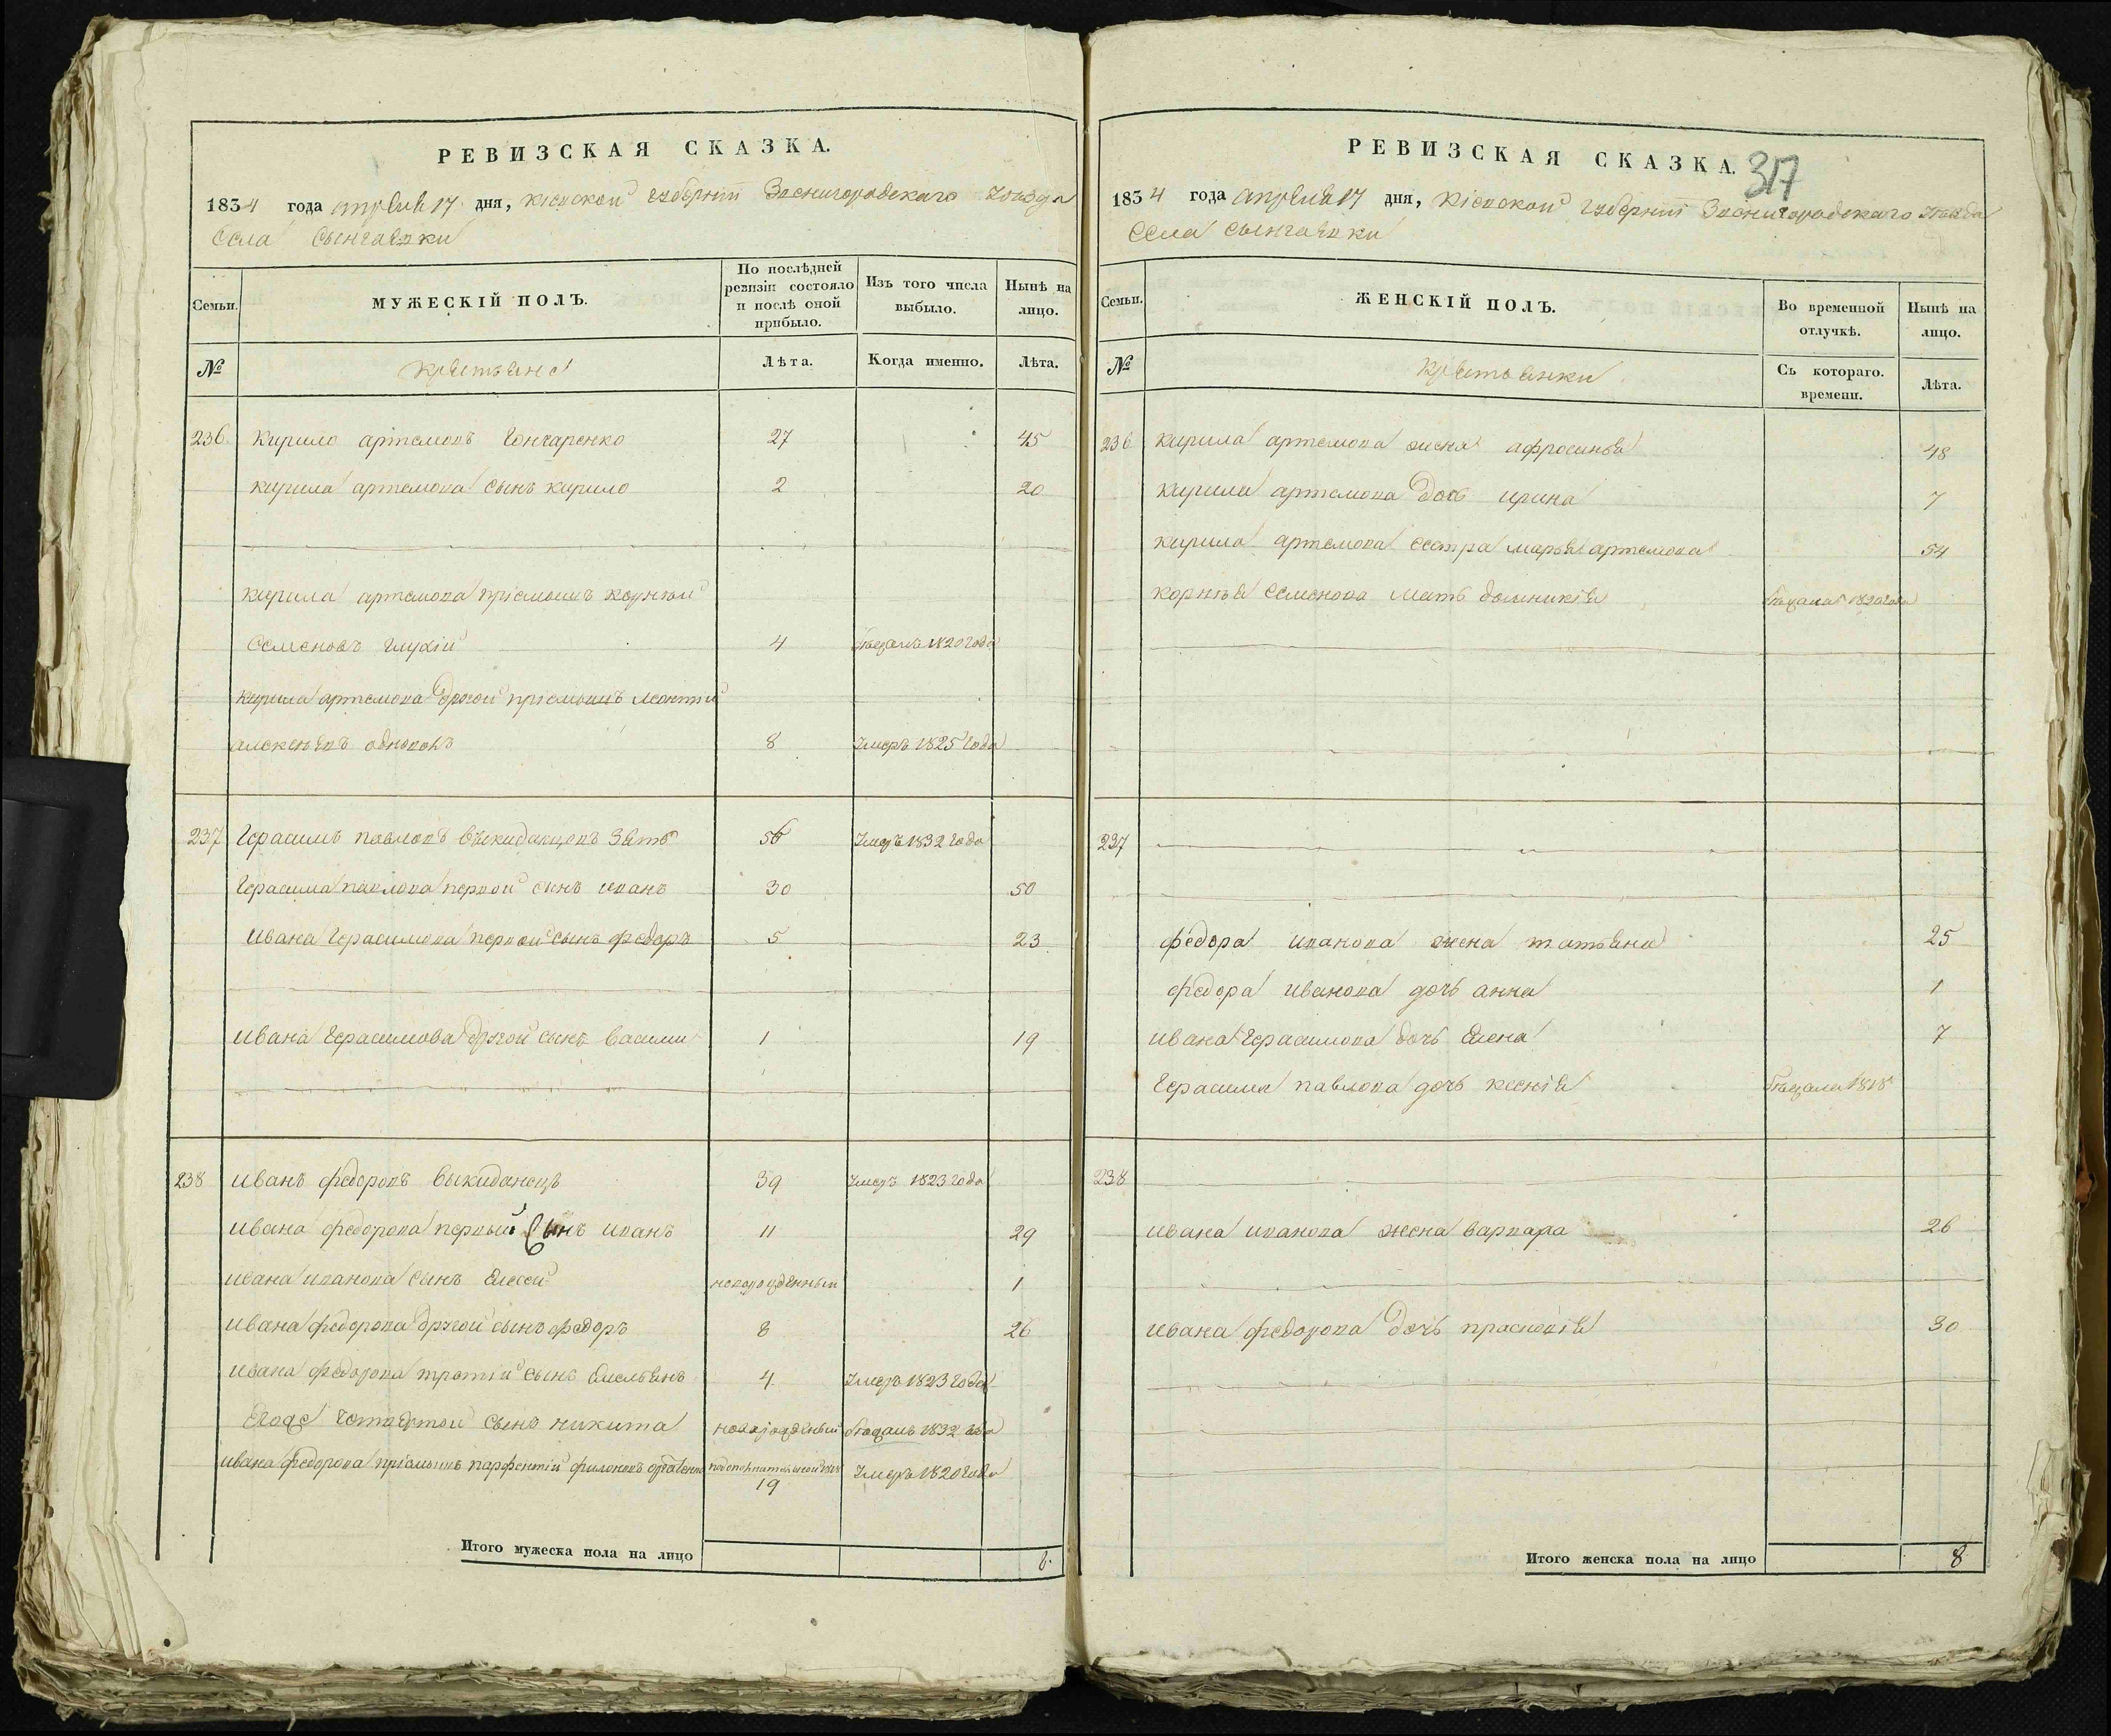 РЕВИЗСКАЯ СКАЗКА.
1834 года апреля 17 дня, Кіевской губерніи Звенигородскаго уѣзда
Села
Семьи. МУЖЕСКІЙ ПОЛЪ. По послѣдней ревизіи состояло и послѣ оной прибыло. Изъ того числа выбыло. Нынѣ на лицо.
№ крестьяне Лѣта. Когда именно. Лѣта.
236 Кирило артемовъ Гончаренко 27 45
кирила артемова сынъ кирило 2 20
кирила артемова пріемышъ корнѣй
Семеновъ глухій 4 бѣжалъ 1820 года
кирила артемова другой пріемышъ леонтій
8 умеръ 1825 года
237 Герасимъ павловъ зять 56 умеръ 1832 года
Герасима павлова первой сынъ иванъ 30 50
ивана Герасимова первой сынъ федоръ 5 23
ивана Герасимова другой сынъ васили 1 19
238 иванъ федоровъ выкиданецъ 39 умеръ 1823 года
ивана федорова первый Сынъ иванъ 11 29
ивана иванова сынъ новорожденный 1
ивана федорова другой сынъ федоръ 8 26
ивана федорова третій сынъ емельянъ 4 умеръ 1823 года
Егоже четвертой сынъ никита новорожденный бѣжалъ 1832 года
ивана федорова пріемышъ парфентій 19 умеръ 1820 года
Итого мужеска пола на лицо
РЕВИЗСКАЯ СКАЗКА. 317
1834 года апреля 17 дня, Кіевской губерніи Звенигородскаго уѣзда
Села
Семьи. ЖЕНСКІЙ ПОЛЪ. Во временной отлучкѣ. Нынѣ на лицо.
№ крестьянки Съ котораго времени. Лѣта.
236 кирила артемова жена афросинья 48
кирила артемова дочь ирина 7
кирила артемова сестра марья артемова 54
корнѣя семенова мать домникія бѣжала 1820 года
237
федора иванова жена татьяна 25
федора иванова дочь анна 1
ивана Герасимова дочь елена 7
Герасима павлова дочь ксенія бѣжала 1818
238
ивана иванова жена варвара 26
ивана федорова дочь 30
Итого женска пола на лицо 8